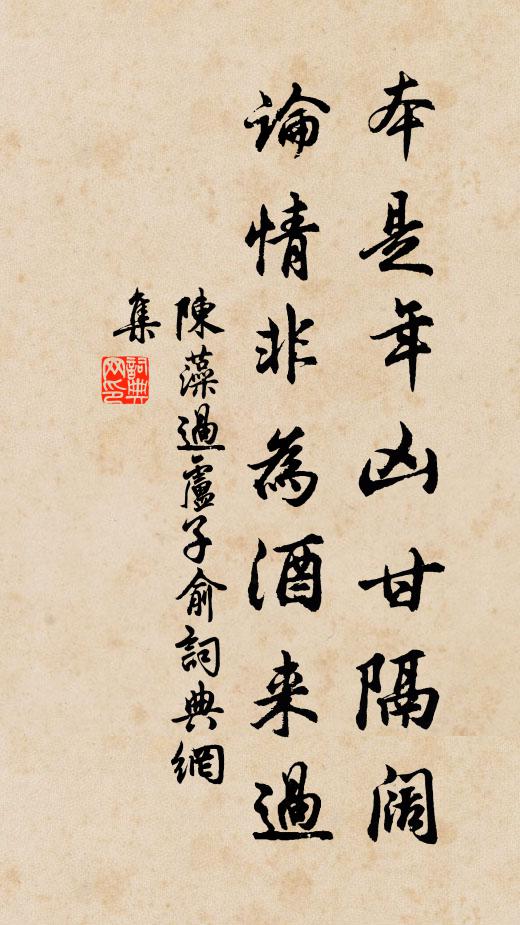 本是年凶甘隔阔
論情非為酒来過
陳藻過盧子俞詞典網
集
詞典
网印